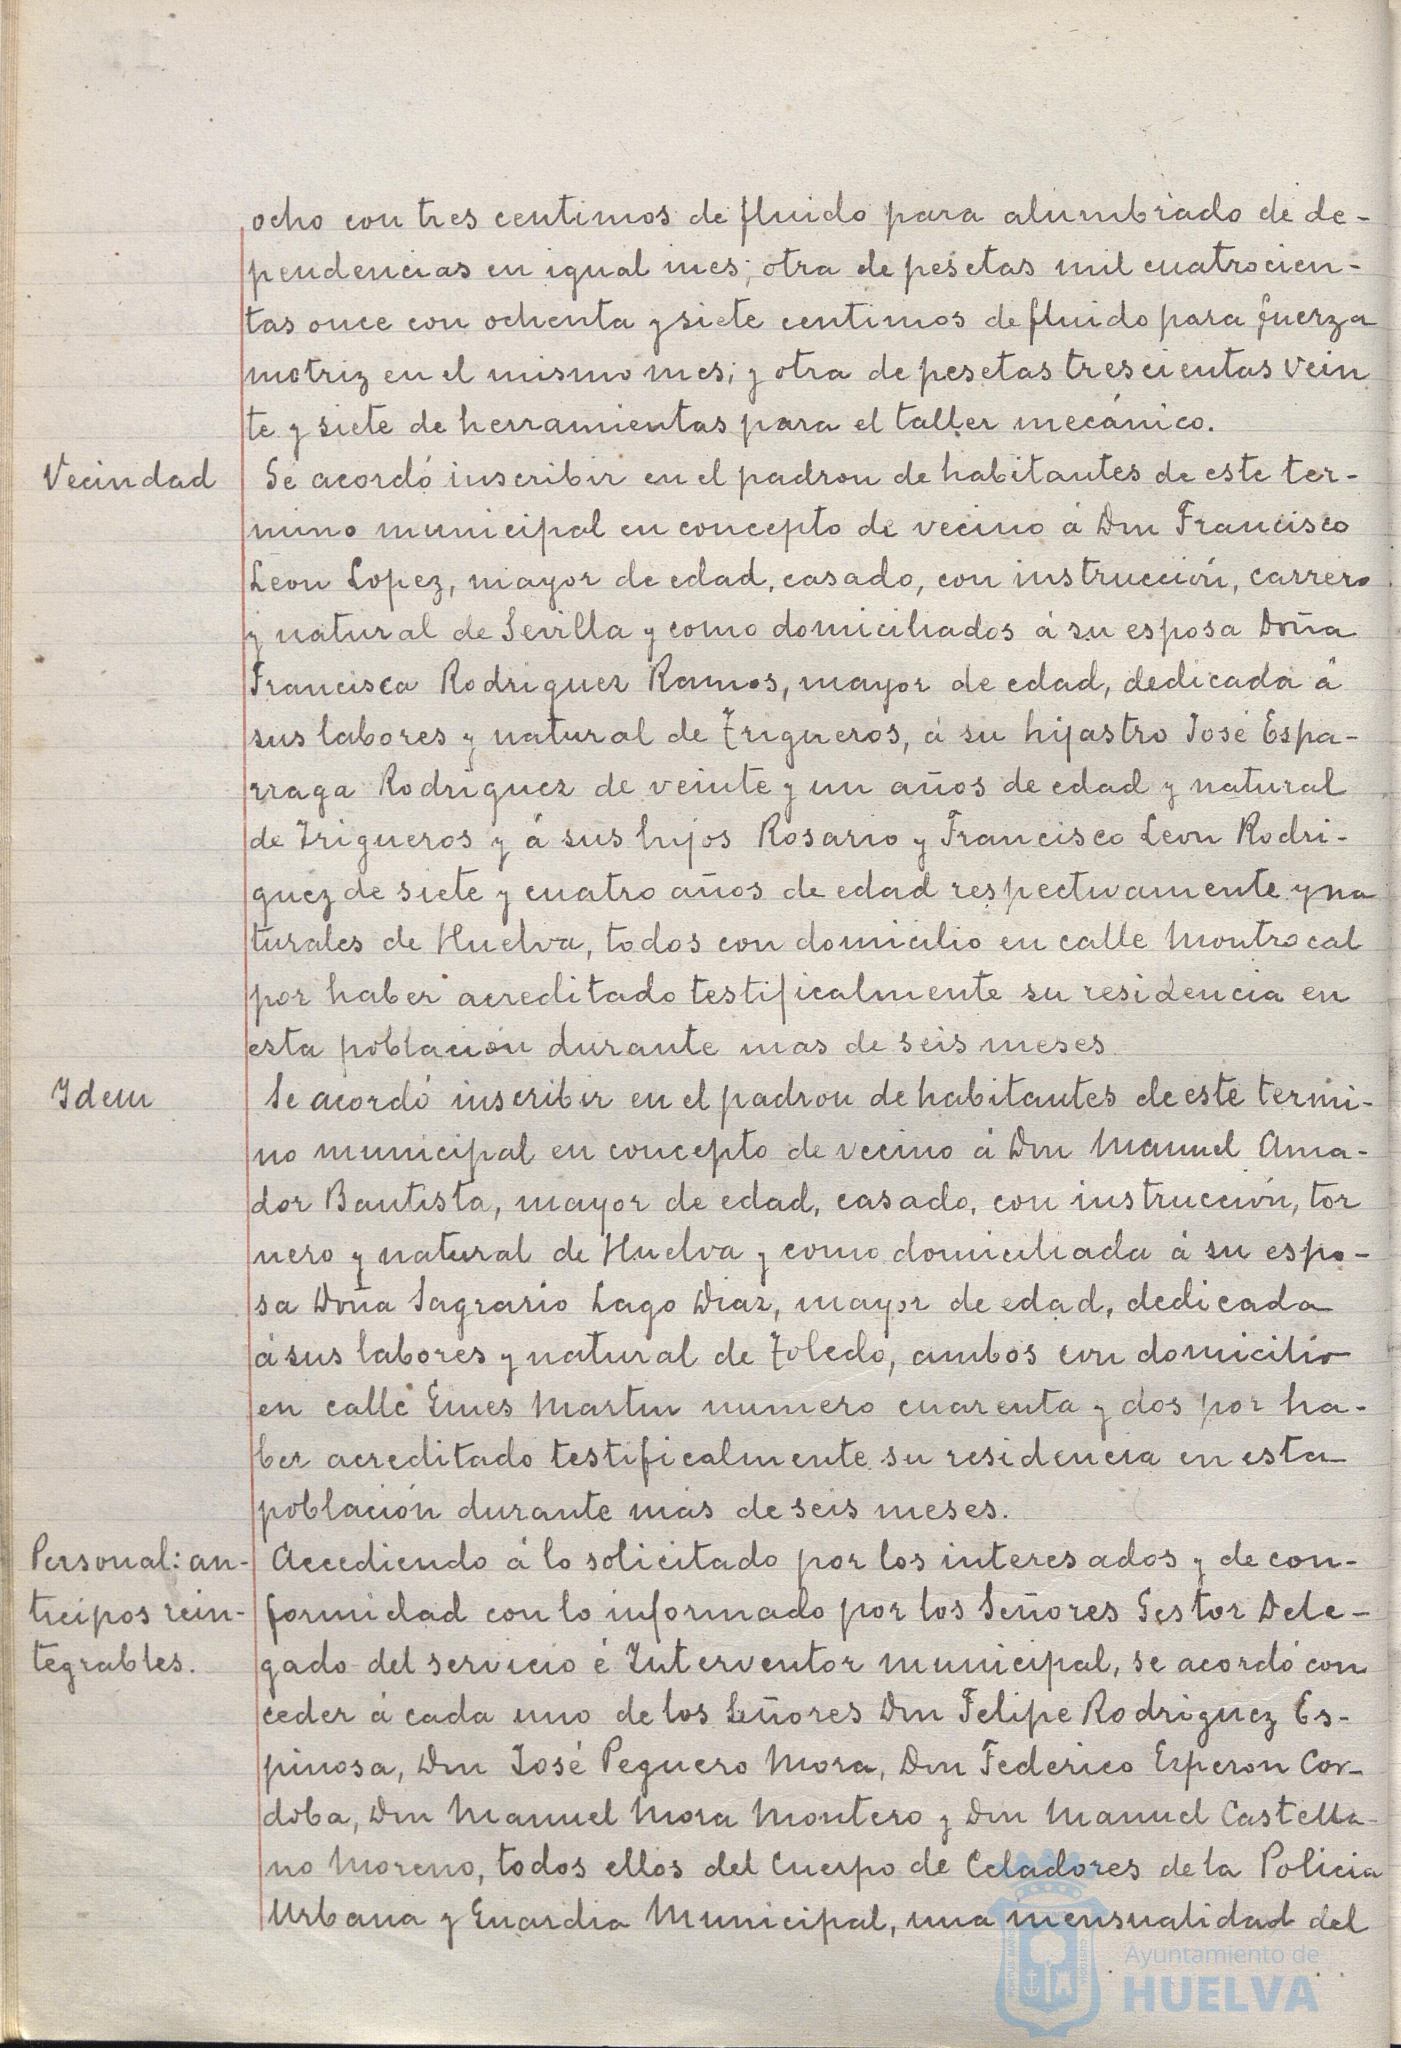 ocho con tres centimos de fluido para alumbrado de de-
pendencias en igual mes; otra de pesetas mil cuatrocien-
tas once con ochenta y siete centimos de fluido para fuerza
motriz en el mismo mes; y otra de pesetas trescientas vein
te y siete de herramientas para el taller mecánico.
Vecindad
Se acordó inscribir en el padron de habitantes de este ter-
mino municipal en concepto de vecino á Don Francisco
Leon Lopez, mayor de edad, casado, con instrucción, carrero
y natural de Sevilla y como domiciliados á su esposa Doña
Francisca Rodriguez Ramos, mayor de edad, dedicada á
sus labores y natural de Trigueros, á su hijastro José Espa-
rraga Rodriguez de veinte y un años de edad y natural
de Trigueros y á sus hijos Rosario y Francisco Leon Rodri-
guez de siete y cuatro años de edad respectivamente y na
turales de Huelva, todos con domicilio en calle Montrocal
por haber acreditado testificalmente su residencia en
esta población durante mas de seis meses
Idem
Se acordó inscribir en el padron de habitantes de este termi-
no municipal en concepto de vecino á Don Manuel Ama-
dor Bautista, mayor de edad, casado, con instrucción, tor
nero y natural de Huelva y como domiciliada á su espo-
sa Doña Sagrario Lago Diaz, mayor de edad, dedicada
á sus labores y natural de Toledo, ambos con domicilio
en calle Gines Martin numero cuarenta y dos por ha-
ber acreditado testificalmente su residencia en esta
población durante más de seis meses.
Personal: an-
ticipos rein-
tegrables.
Accediendo á lo solicitado por los interesados y de con-
formidad con lo informado por los Señores Gestor Dele-
gado del servicio é Interventor municipal, se acordó con
ceder á cada uno de los Señores Don Felipe Rodriguez Es-
pinosa, Don José Peguero Mora, Don Federico Esperon Cor-
doba, Don Manuel Mora Montero y Don Manuel Castella-
no Moreno, todos ellos del Cuerpo de Celadores de la Policia
Urbana y Guardia Municipal, una mensualidad del
Ayuntamiento de
HUELVA